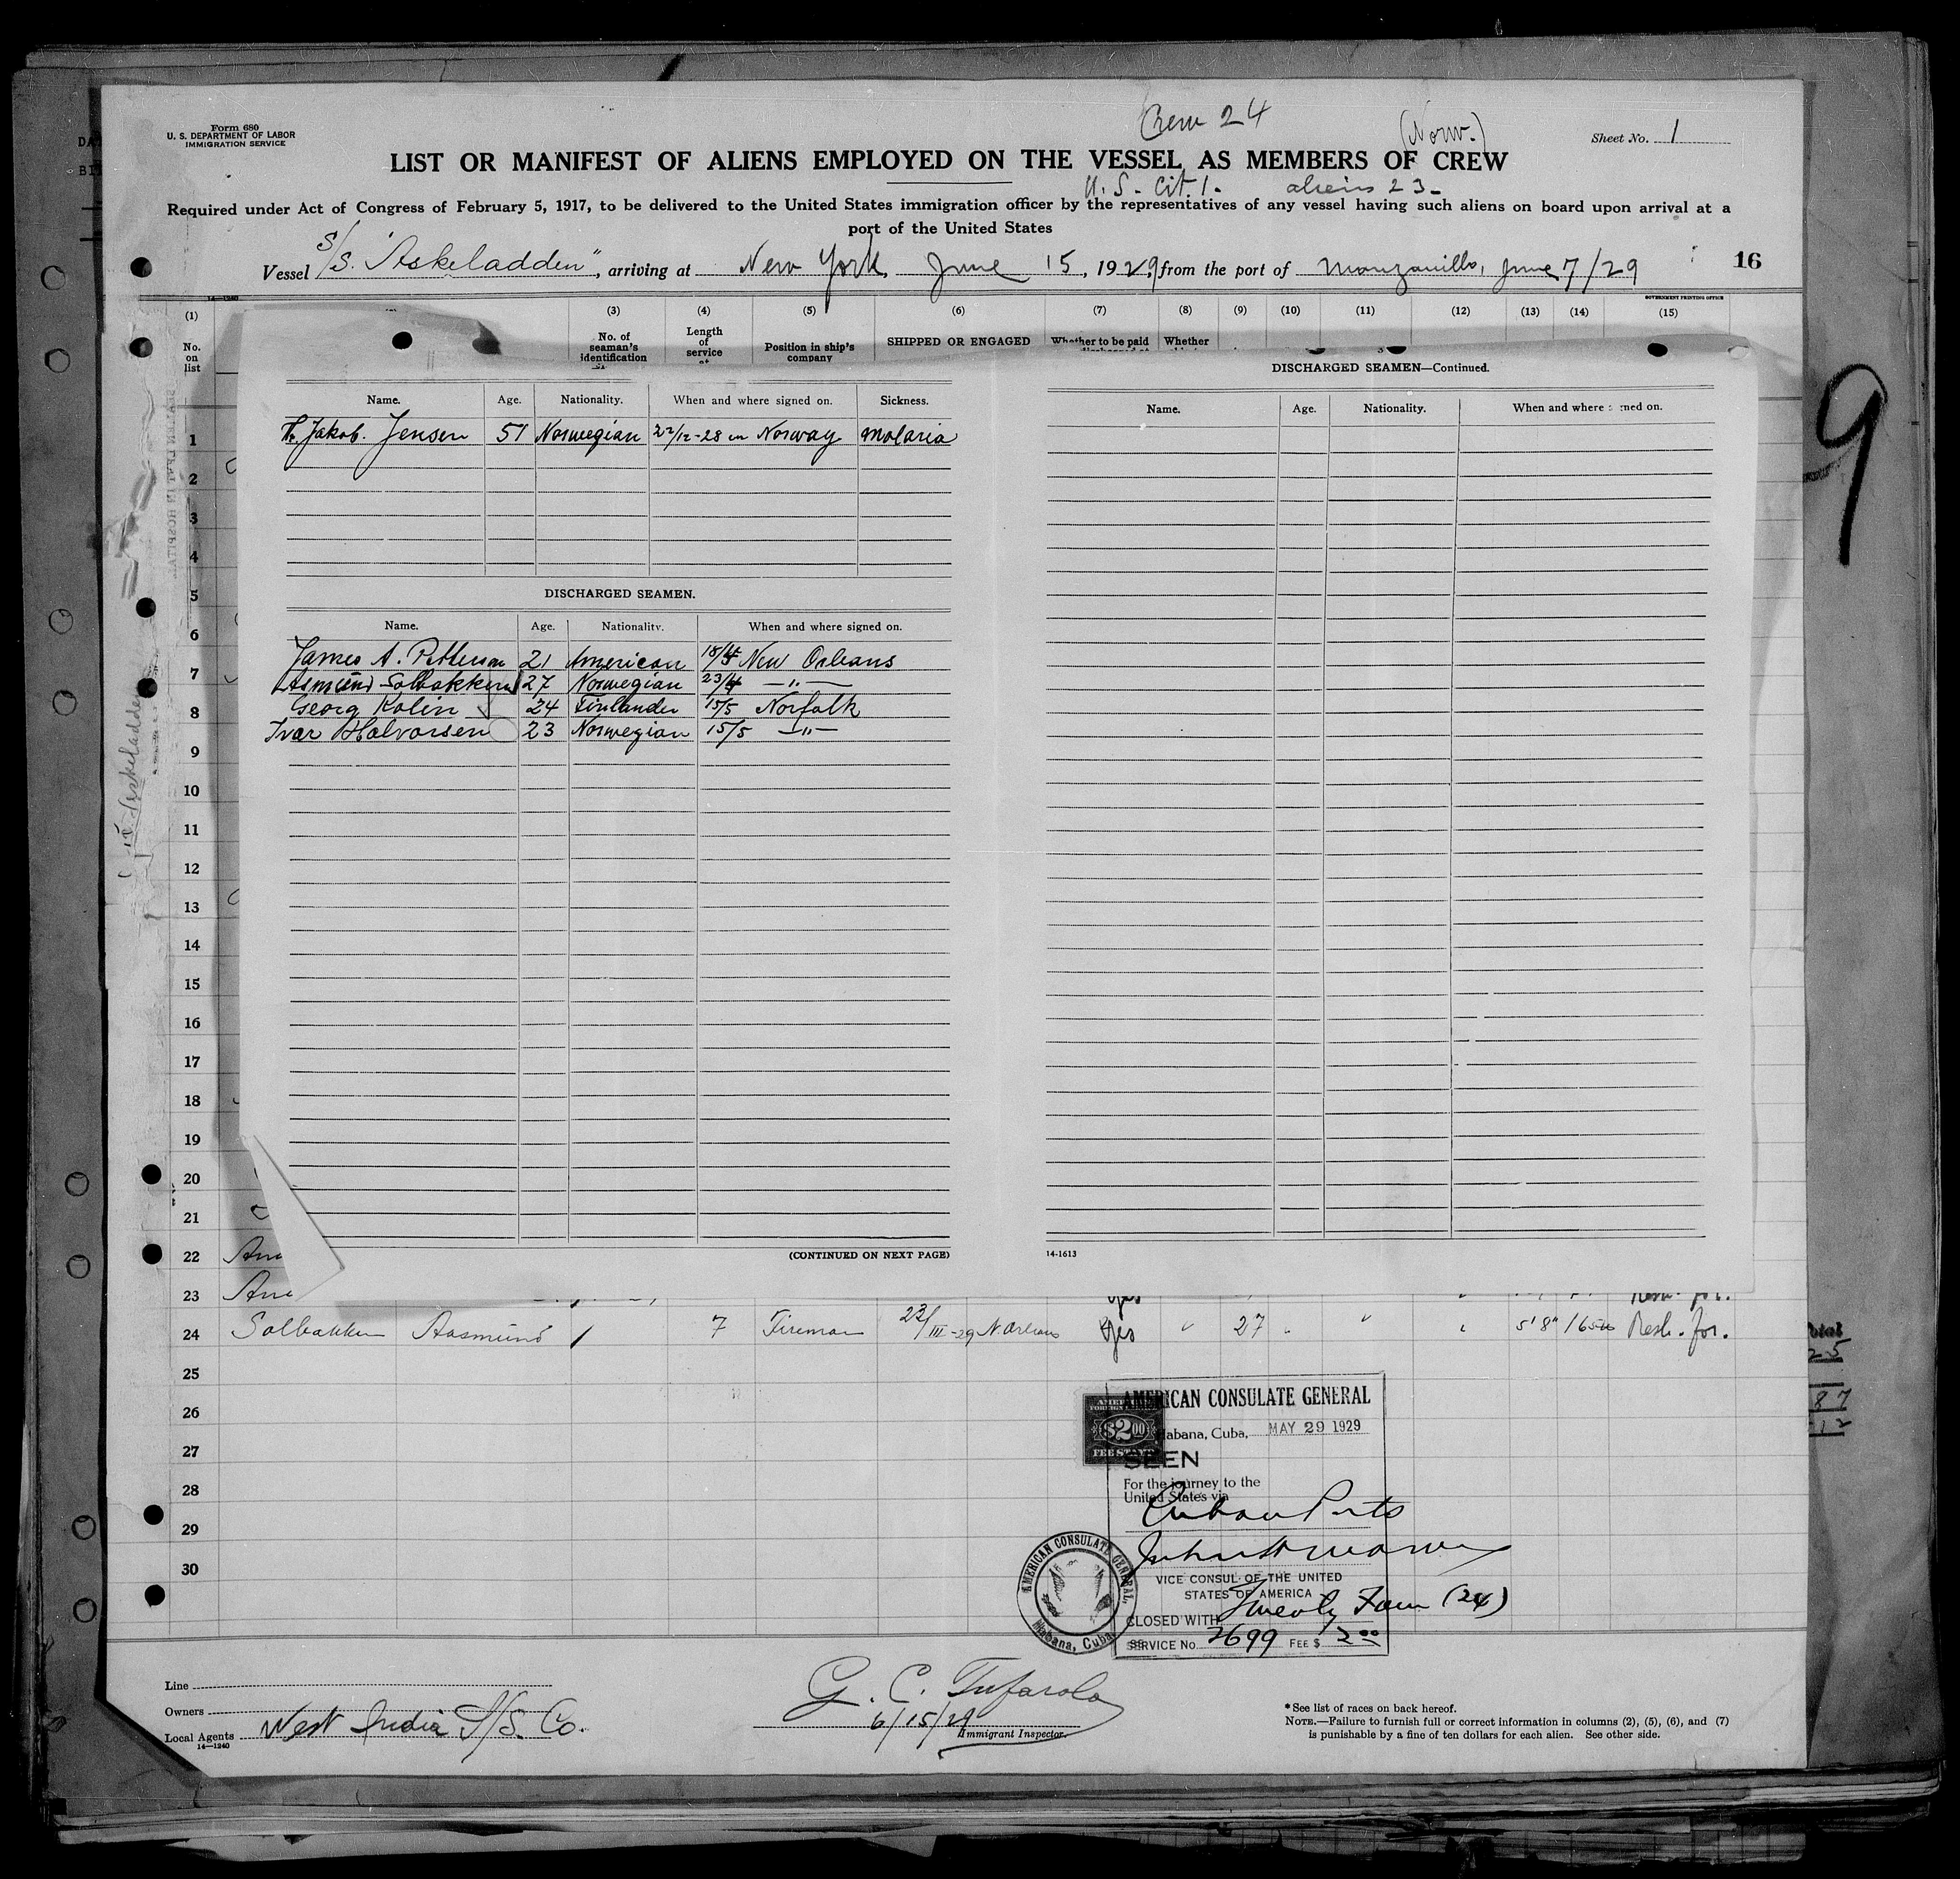 Form 680
U. S. DEPARTMENT OF LABOR
IMMIGRATION SERVICE
Crew 24
(Norw.)
Sheet No. 1
LIST OR MANIFEST OF ALIENS EMPLOYED ON THE VESSEL AS MEMBERS OF CREW
U.S. Cit. 1. aliens 23-
Required under Act of Congress of February 5, 1917, to be delivered to the United States immigration officer by the representatives of any vessel having such aliens on board upon arrival at a
port of the United States
Vessel S/S. "Askeladden", arriving at New York, June 15, 1929, from the port of Manzanillo, June 7/29
16
14-1240
GOVERNMENT PRINTING OFFICE
(1) (3) (4) (5) (6) (7) (8) (9) (10) (11) (12) (13) (14) (15)
No. on list
No. of seaman's identification
Length of service at
Position in ship's company
SHIPPED OR ENGAGED
Whether to be paid
Whether
DISCHARGED SEAMEN—Continued.
Name. Age. Nationality. When and where signed on. Sickness.
Name. Age. Nationality. When and where signed on.
Jakob. Jensen 51 Norwegian 22/12-28 in Norway malaria
DISCHARGED SEAMEN.
Name. Age. Nationality. When and where signed on.
James A. Petterson 21 American New Orleans
Asmund Solbakken 27 Norwegian 23/4 —"—
Georg Kolin 24 Finlander 15/5 Norfolk
Ivar Halvorsen 23 Norwegian 15/5 —"—
1
2
3
4
5
6
7
8
9
10
11
12
13
14
15
16
17
18
19
20
21
22
23
(CONTINUED ON NEXT PAGE)
14-1613
24 Solbakken Aasmund 1 7 Fireman 23/III-29 N. Orleans yes " 27 " " " 5'8" 165 Resh. for.
25
26
27
28
29
30
9
Total
25
87
12
AMERICAN CONSULATE GENERAL
Habana, Cuba, MAY 29 1929
$2.00
FEE STAMP
SEEN
For the journey to the
United States via
Cuban Ports
VICE CONSUL OF THE UNITED
STATES OF AMERICA
CLOSED WITH Twenty Four (24)
SERVICE No. 2699 FEE $ 2.00
AMERICAN CONSULATE GENERAL,
Habana, Cuba
Line
Owners
Local Agents West India S/S. Co.
14-1240
G. C. Tufarolo
6/15/29
Immigrant Inspector.
* See list of races on back hereof.
NOTE.—Failure to furnish full or correct information in columns (2), (5), (6), and (7)
is punishable by a fine of ten dollars for each alien. See other side.